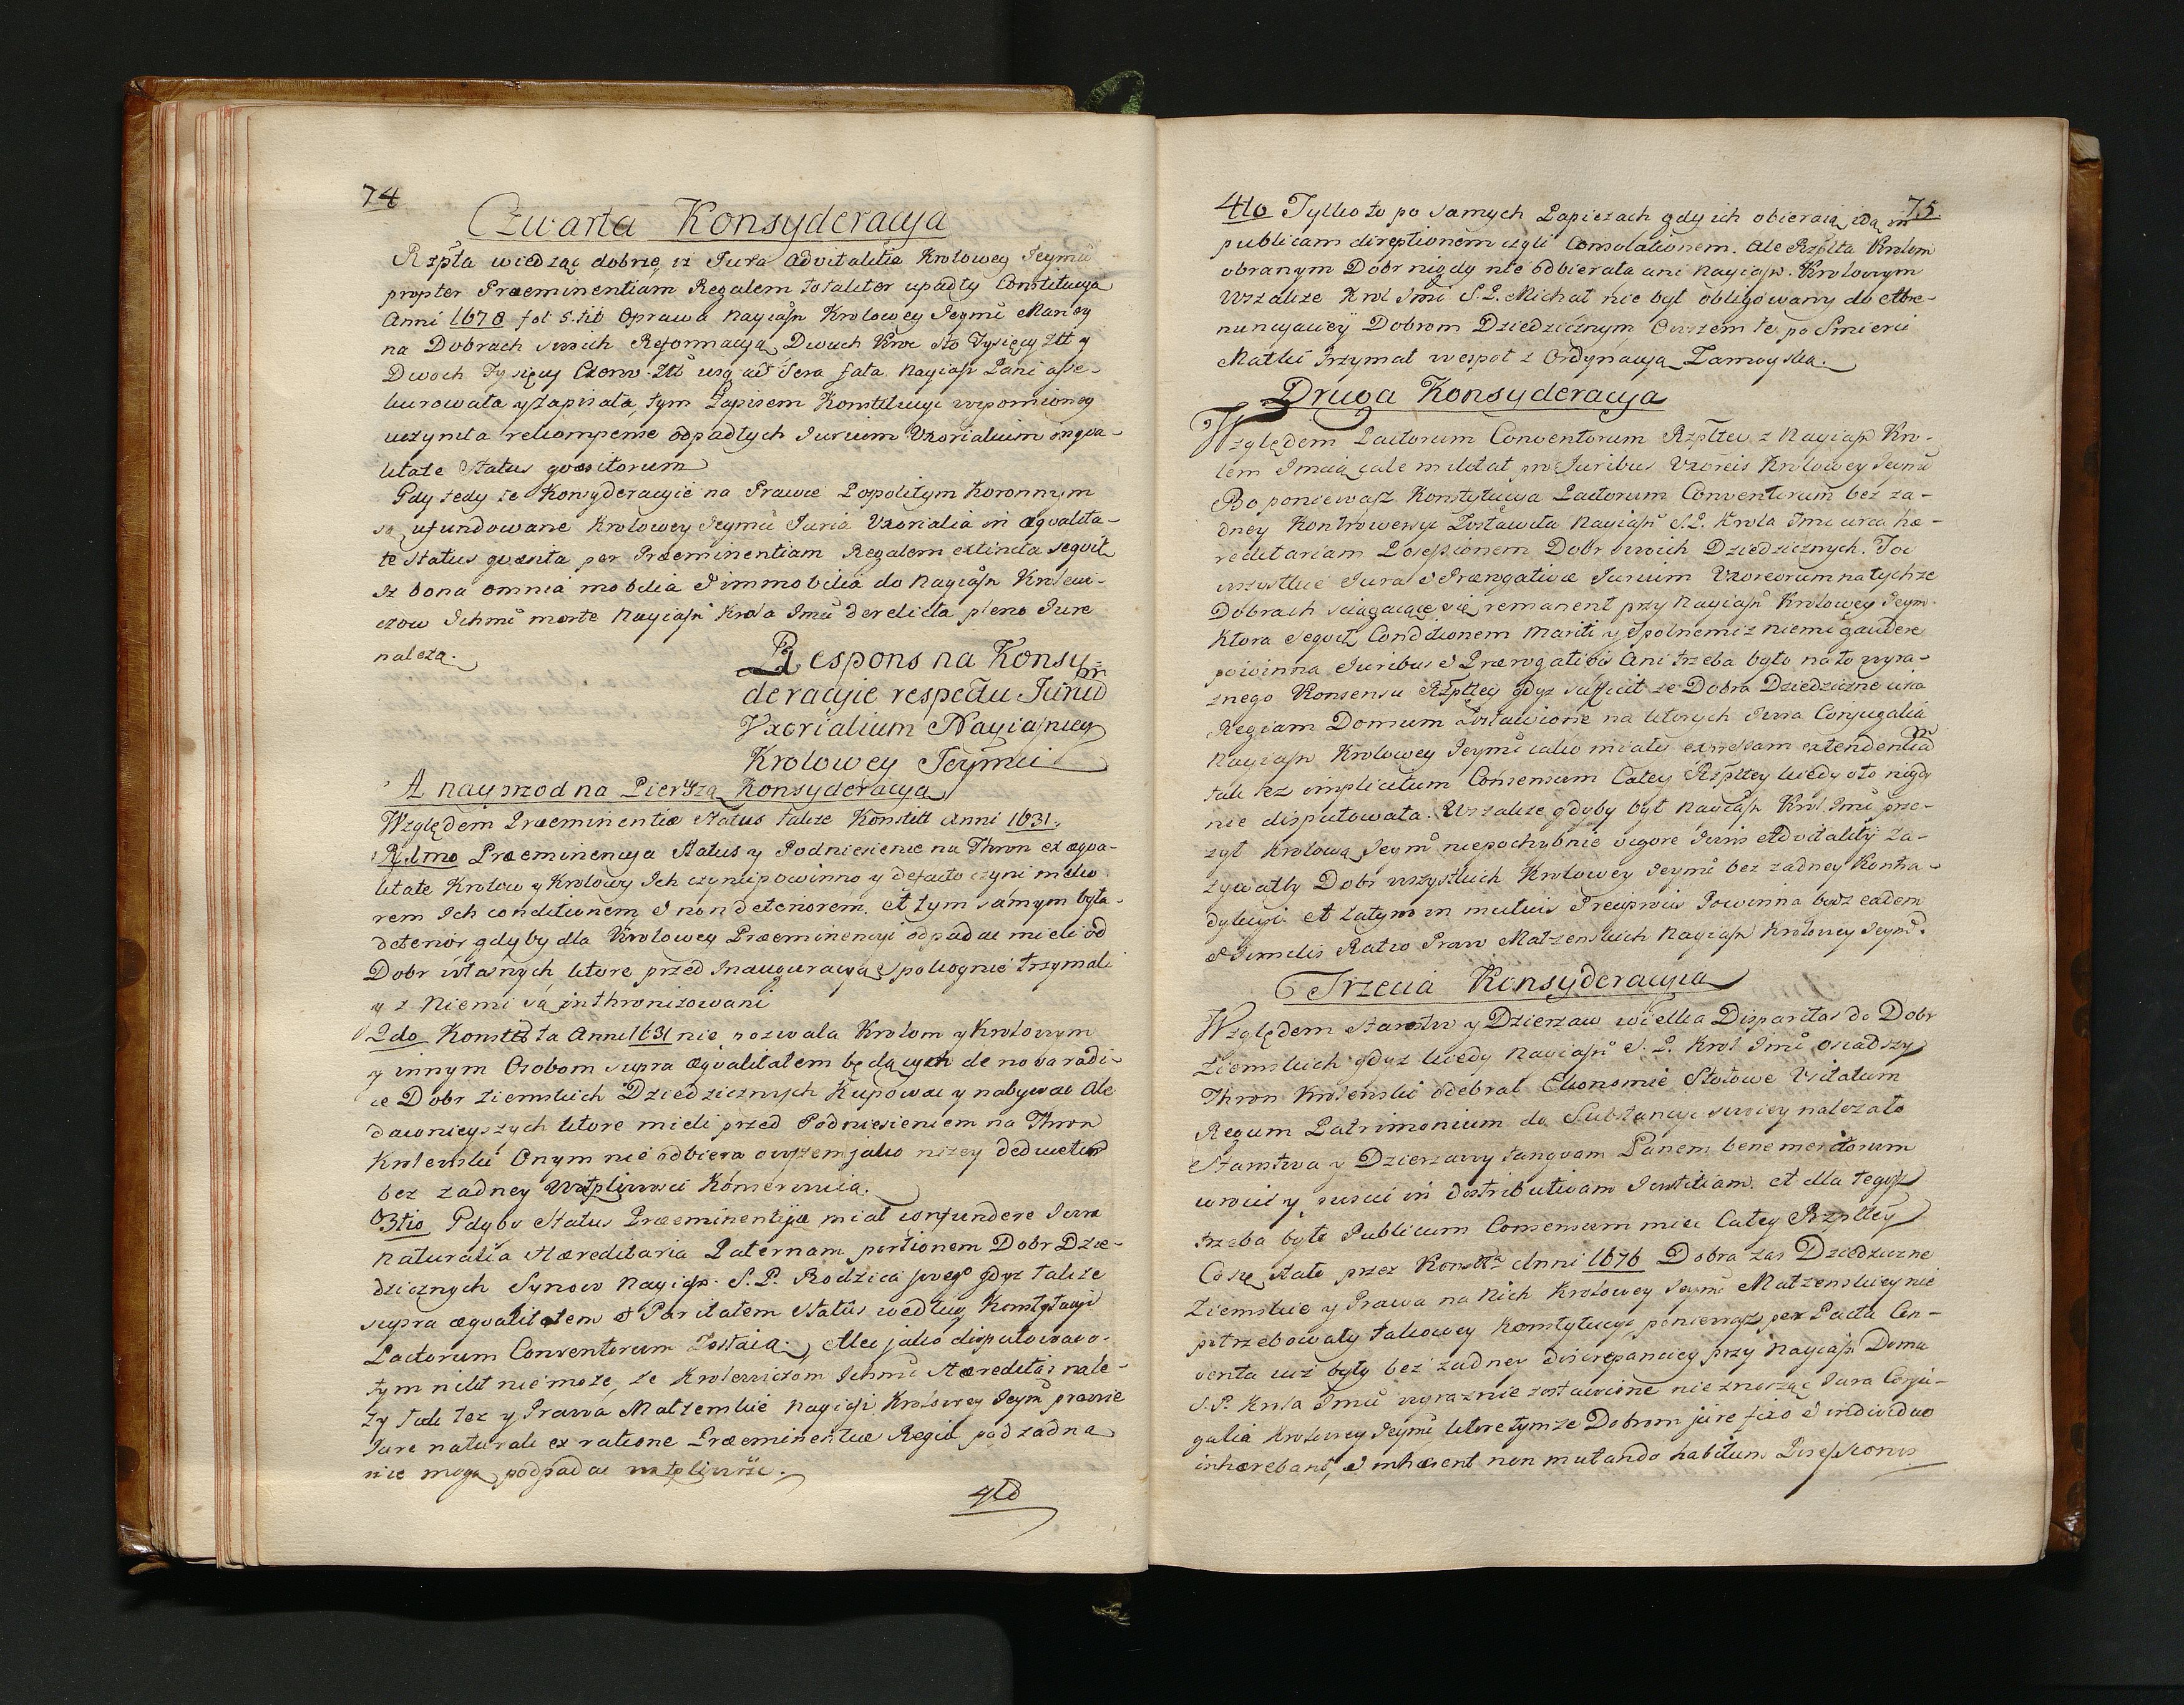 74
Czwarta Konsyderacya
Rzpta wiedząc dobrze, iz Jura Advitalitia Krolowey Jeymū
propter Præeminentiam Regalem totaliter upadły Constitucyą
Anni 1678 fol 5. tit Oprawa Nayiaśn Krolowey Jeymū Maryey
na Dobrach swoich Reformacyą Dwuch Kroc sto Tysięcy Złł y
Dwoch Tysięcy Czerw. Złł usq ad sera fata Nayiaśn Pani asse-
kurowała y zapisała, tym Zapisem Konstitucyi wspomioney
uczyniła rekompense odpadłych Jurium Uxorialium in æqva-
litate Status qvæsitorum
Gdy tedy te Konsyderacyie na Prawie Pospolitym Koronnym
są ufundowane Krolowey Jeymū Juria Uxorialia in æqvalita-
te Status qvæsita per Præeminentiam Regalem extincta seqvit
Iz bona omnia mobilia & immobilia do Nayiaśn Krolewi-
czow Ichmū morte Nayiaśn Krola Jmū derelicta pleno Jure
nalezą.
Respons na Konsy-
deracyie respectu Juriū
Uxorialium Nayiaśniey
Krolowey Jeymci
A nayprzod na Pierszą Konsyderacyą
Względem Præeminentiæ Status takze Konstitt Anni 1631.
R. 1mo Præeminencya Status y Podniesienie na Thron ex æqva-
litate Krolow y Krolowy Ich czynic powinno y defacto czyni melio-
rem Ich conditionem & non deteriorem. et tym samym była-
deterior gdyby dla Krolowey Præeminencyi odpadac mieli od
Dobr własnych ktore przed Inauguracyą spokoynie trzymali
y z Niemi są inthronizowani
2do Konstitt ta Anni 1631 nie pozwala Krolom y Krolowym
y innym Osobom supra æqvalitatem będących de nova radi-
ce Dobr Ziemskich Dziedzicznych Kupowac y nabywac Ale
dawnieyszych ktore mieli przed Podniesieniem na Thron
Krolewski Onym nie odbiera owszem jako nizey deducetur
bez zadney Wątpliwosci Konserwuie.
3tio Gdyby Status Præeminentiæ miał confundere Jura
naturalia Hæreditaria Paternam portionem Dobr Dzie-
dzicznych Synow Nayiaśn. S.P. Rodzica swego gdyz takze
supra æqvalitatem & Paritatem Status według Konstytucyi
Pactorum Conventorum Zostaią. Ale jako disputowac o-
tym nikt nie moze, ze Krolewiczom Ichmū Hæreditas nale-
zy tak tez y Prawa Małzenskie Nayiaśn Krolowey Jeymū prawie
Jure naturali ex ratione Præeminentiæ Regiæ pod zadną
nie mogą podpadac wątpliwosc.
4to
75.
4to Tylko to po samych Papiezach gdy ich obieraią idą in
publicam direptionem czyli Consolationem. Ale Rzplta Krolom
obranym Dobr nigdy nie odbierała ani Nayiaśn. Krolowym
Wszakze Krol Jmū S.P. Michał nie był obligowany do Abre-
nuncyacyi Dobrom Dziedzicznym, Owszem te po Smierci
Matki trzymał wespoł z Ordynacyą Zamoyską.
Druga Konsyderacya
Względem Pactorum Conventorum Rzpltey z Nayiaśn Kro-
lem Jmcią cale militat pro Juribus Uxoreis Krolowey Jeymū
Bo poniewasz Konstytucya Pactorum Conventorum bez za-
dney Kontrowersyi Zostawiła Nayiaśn S.P. Krola Jmci circa hæ-
reditariam Possessionem Dobr swoich Dziedzicznych. Toc
wszystkie Jura & Prærogativæ Jurium Uxoreorum na tychze
Dobrach sciągaiące się remanent przy Nayiaśn Krolowey Jeym.
Ktora seqvit Conditionem Mariti y Spolnemi z niemi gaudere
powinna Juribus & Prærogativis Ani trzeba było na to wyra-
znego Konsensu Rzpltey gdyz sufficit ze Dobra Dziedziczne circa
Regiam Domum Zostawione na ktorych Jura Conjugalia
Nayiaśn Krolowey Jeymū jako miały expressam extendentiam
tak tez implicitum Consensum Całey Rzpltey kiedy o to nigdy
nie disputowała. Wszakze gdyby był Nayiaśn Krol Jmū prze-
zył Krolową Jeymū niepochybnie vigore Juris Advitality Za-
zywałby Dobr wszystkich Krolowey Jeymū bez zadney Kontra-
dykcyi. et Zatym in mutuis Preipuis Powinna bydz eadem
& Similis Ratio Praw Małzenskich Nayiaśn Krolowey Jeymū.
Trzecia Konsyderacya
Względem Starostw y Dzierzaw wielka Disparitas do Dobr
Ziemskich gdyz kiedy Nayiaśn S.P. Krol Jmū, osiadszy
Thron Krolewski odebrał Ekonomie Stołowe Usitatum
Regum Patrimonium do Substancyi swoiey nalezało
Starostwa y Dzierzawy tanqvam Panem benemeritorum
wrocić y, puscic in distributivam Justitiam. et dla tegosz
trzeba było Publicum Consensum miec Całey Rzpltey
Co się stało przez Konsttz Anni 1676 Dobra zas Dziedziczne
Ziemskie y Prawa na nich Krolowey Jeymū Małzenskiey nie
potrzebowały takowey Konstytucyi poniewasz per Pacta Con-
venta iuz były bez zadney discrepancyey przy Nayiaśn Domu
S.P. Krola Jmū wyraznie zostawione nie znosząc Jura Conju-
galia Krolowey Jeymū ktore tymze Dobrom jure fixo & individuo
inhærebant, & inhærent non mutando habitum Possessionis